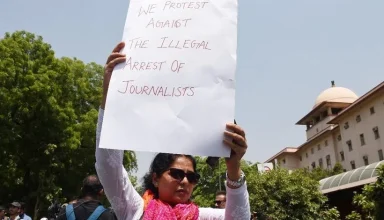 WE PROTEST
AGAINST
THE ILLEGAL
ARREST OF
JOURNALISTS